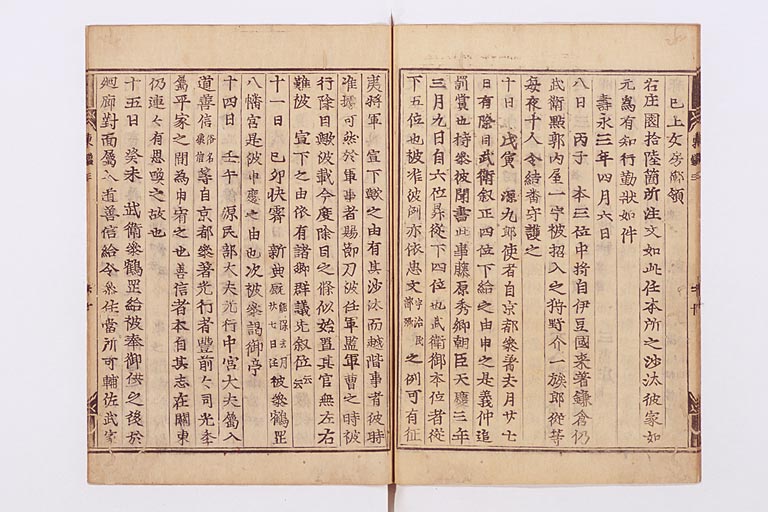 已上女房御領
右庄園拾陸箇所注文如此任本所之沙汰彼家如
元為有知行勤狀如件
壽永三年四月六日
八日 丙子 本三位中將自伊豆國来著鎌倉仍
武衛點郭内屋一宇被招入之狩野介一族郎從等
每夜十人令結番守護之
十日 戊寅 源九郎使者自京都參著去月廿七
日有除目武衛叙正四位下給之由申之是義仲追
討賞也持參彼聞書此事藤原秀鄉朝臣天慶三年
三月九日自六位昇從下四位也武衛御本位者從
下五位也被准彼例亦依忠文 宇治民部卿 之例可有征
夷將軍 宣下歟之由有其沙汰而越階事者彼時
准據可然於軍事者賜節刀被任軍監軍曹之時被
行除目歟被載今度除目之條似始置其官無左右
難被 宣下之由依有諸卿群議先叙位云云
十一日 己卯快霽 新典厩 能保去月廿七日任 被參鶴罡
八幡宮是彼申慶之由也次被參謁御亭
十四日 壬午 源民部大夫光行中宮大夫屬入
道善信 俗名康信 等自京都參著光行者豐前々司光季
屬平家之間為申宥之也善信者本自其志在關東
仍連々有恩喚之故也
十五日 癸未 武衛參鶴罡給被奉御供之後於
廻廊對面屬入道善信給令參住當所可輔佐武家